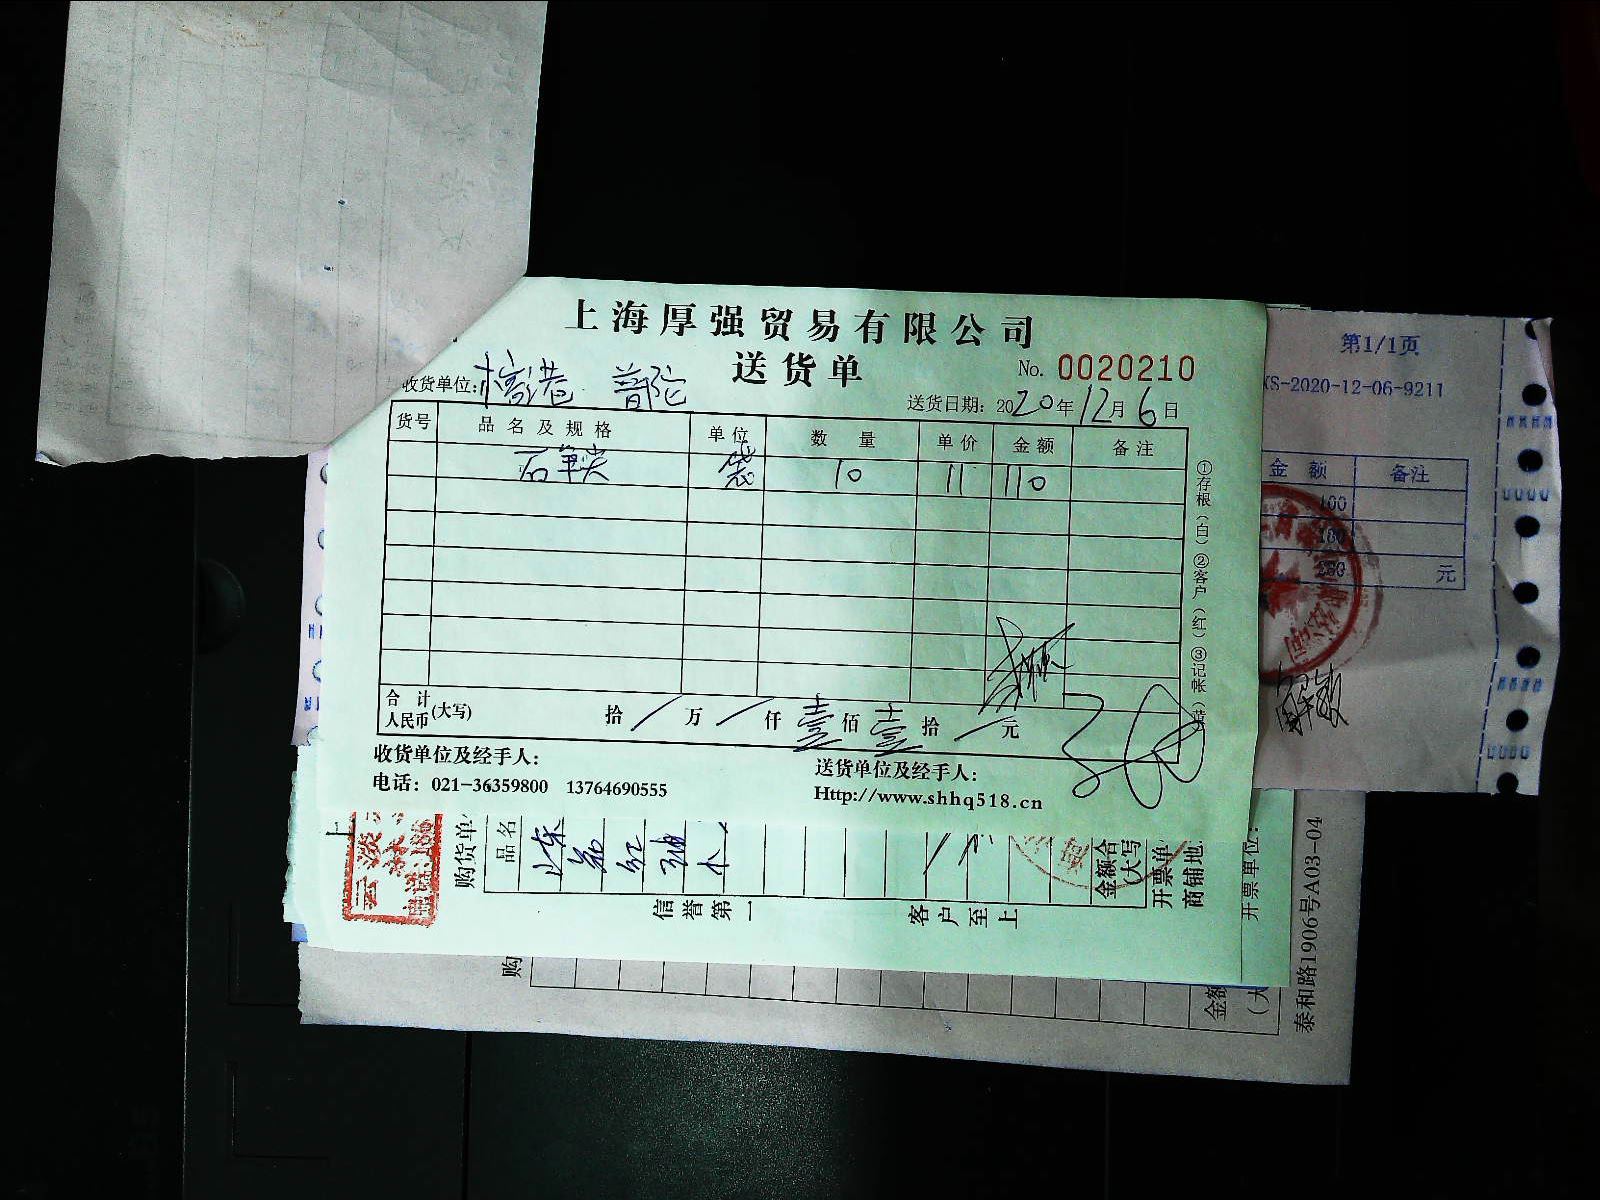 上海厚强贸易有限公司
送货单
No. 0020210
收货单位: 港 普陀
送货日期: 2020年12月6日
货号 品名及规格 单位 数量 单价 金额 备注
袋 10 11 110
合计人民币(大写) 拾/万/仟壹佰壹拾/元
收货单位及经手人:
送货单位及经手人:
电话: 021-36359800 13764690555
Http://www.shhq518.cn
①存根(白)②客户(红)③记帐(黄
第1/1页
XS-2020-12-06-9211
金额 备注
100
180
280 元
购货单
品名
金额合
(大写
开票单
商铺地
信誉第一 客户至上
开票单位:
购
金额
(大
泰和路1906号A03-04